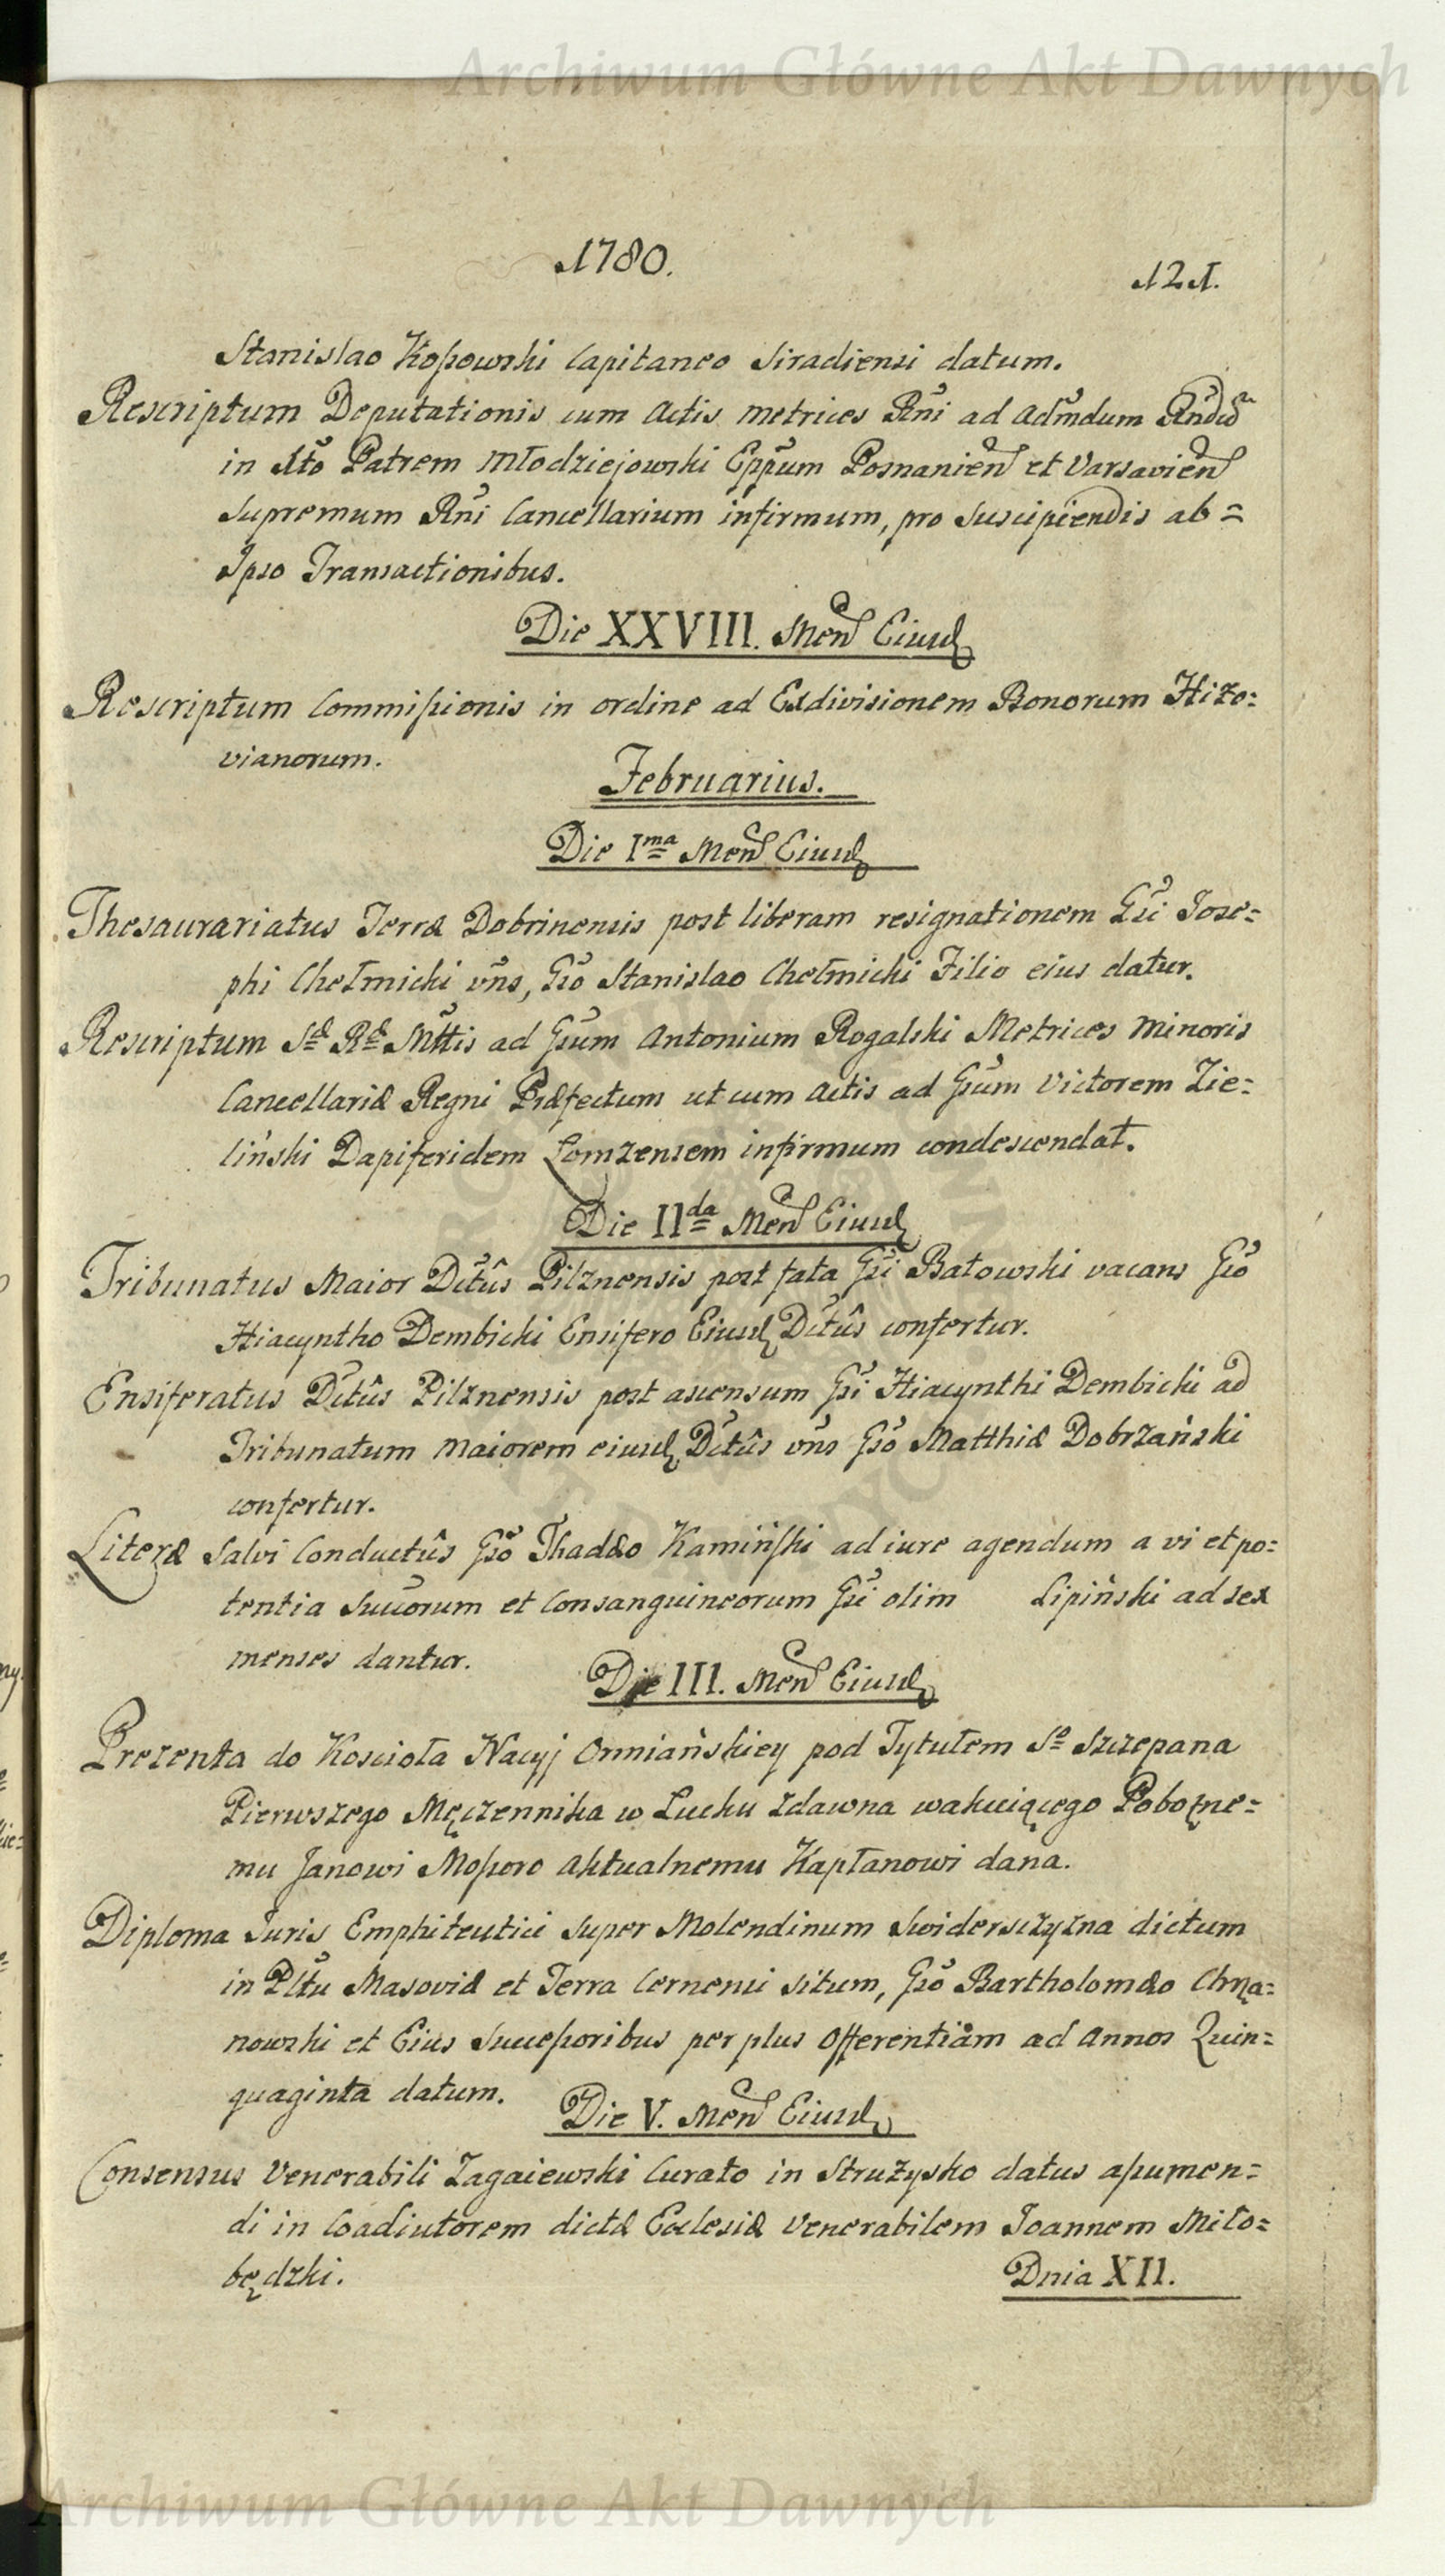 Archiwum Główne Akt Dawnych
1780.
121.
Stanislao Kossowski Capitaneo Siradiensi datum.
Rescriptum Deputationis cum Actis Metrices Rñi ad Admdum Rndū
in Xto Patrem Młodziejowski Eppum Posnanien et Varsavien
Supremum Rñi Cancellarium infirmum, pro suscipiendis ab=
Ipso Transactionibus.
Die XXVIII. Men Eiusd
Rescriptum Commissionis in ordine ad Exdivisionem Bonorum Hizo=
vianorum.
Februarius.
Die Ima Men Eiusd
Thesaurariatus Terræ Dobrinensis post liberam resignationem Gsi Jose=
phi Chełmicki vns, Gso Stanislao Chełmicki Filio eius datur.
Rescriptum S R Mttis ad Gsum Antonium Rogalski Metrices Minoris
Cancellariæ Regni Præfectum ut cum Actis ad Gsum Victorem Zie=
liński Dapiferidem Łomzensem infirmum condescendat.
Die IIda Men Eiusd
Tribunatus Maior Dctûs Pilznensis post fata Gsi Batowski vacans Gso
Hiacyntho Dembicki Ensifero Eiusd Dctûs confertur.
Ensiferatus Dctûs Pilznensis post ascensum Gsi Hiacynthi Dembicki ad
Tribunatum Maiorem eiusd Dctûs vns Gso Matthiæ Dobrzański
confertur.
Literæ Salvi Conductûs Gso Thadæo Kamiński ad iure agendum a vi et po=
tentia Succorum et Consanguineorum Gsi olim Lipiński ad sex
menses dantur.
Die III. Men Eiusd
Prezenta do Koscioła Nacyj Ormiańskiey pod Tytułem So Szczepana
Pierwszego Męczennika w Łucku zdawna wakuiącego Pobożne=
mu Janowi Mosforo Aktualnemu Kapłanowi dana.
Diploma Juris Emphiteutici super Molendinum Swiderszczyzna dictum
in Pltu Masoviæ et Terra Cernensi situm, Gso Bartholomæo Chrza=
nowski et Eius Successoribus per plus Offerentiam ad Annos Quin=
quaginta datum.
Die V. Men Eiusd
Consensus Venerabili Zagaiewski Curato in Strużysko datus assumen=
di in Coadiutorem dictæ Ecclesiæ Venerabilem Joannem Miło=
będzki.
Dnia XII.
Archiwum Główne Akt Dawnych